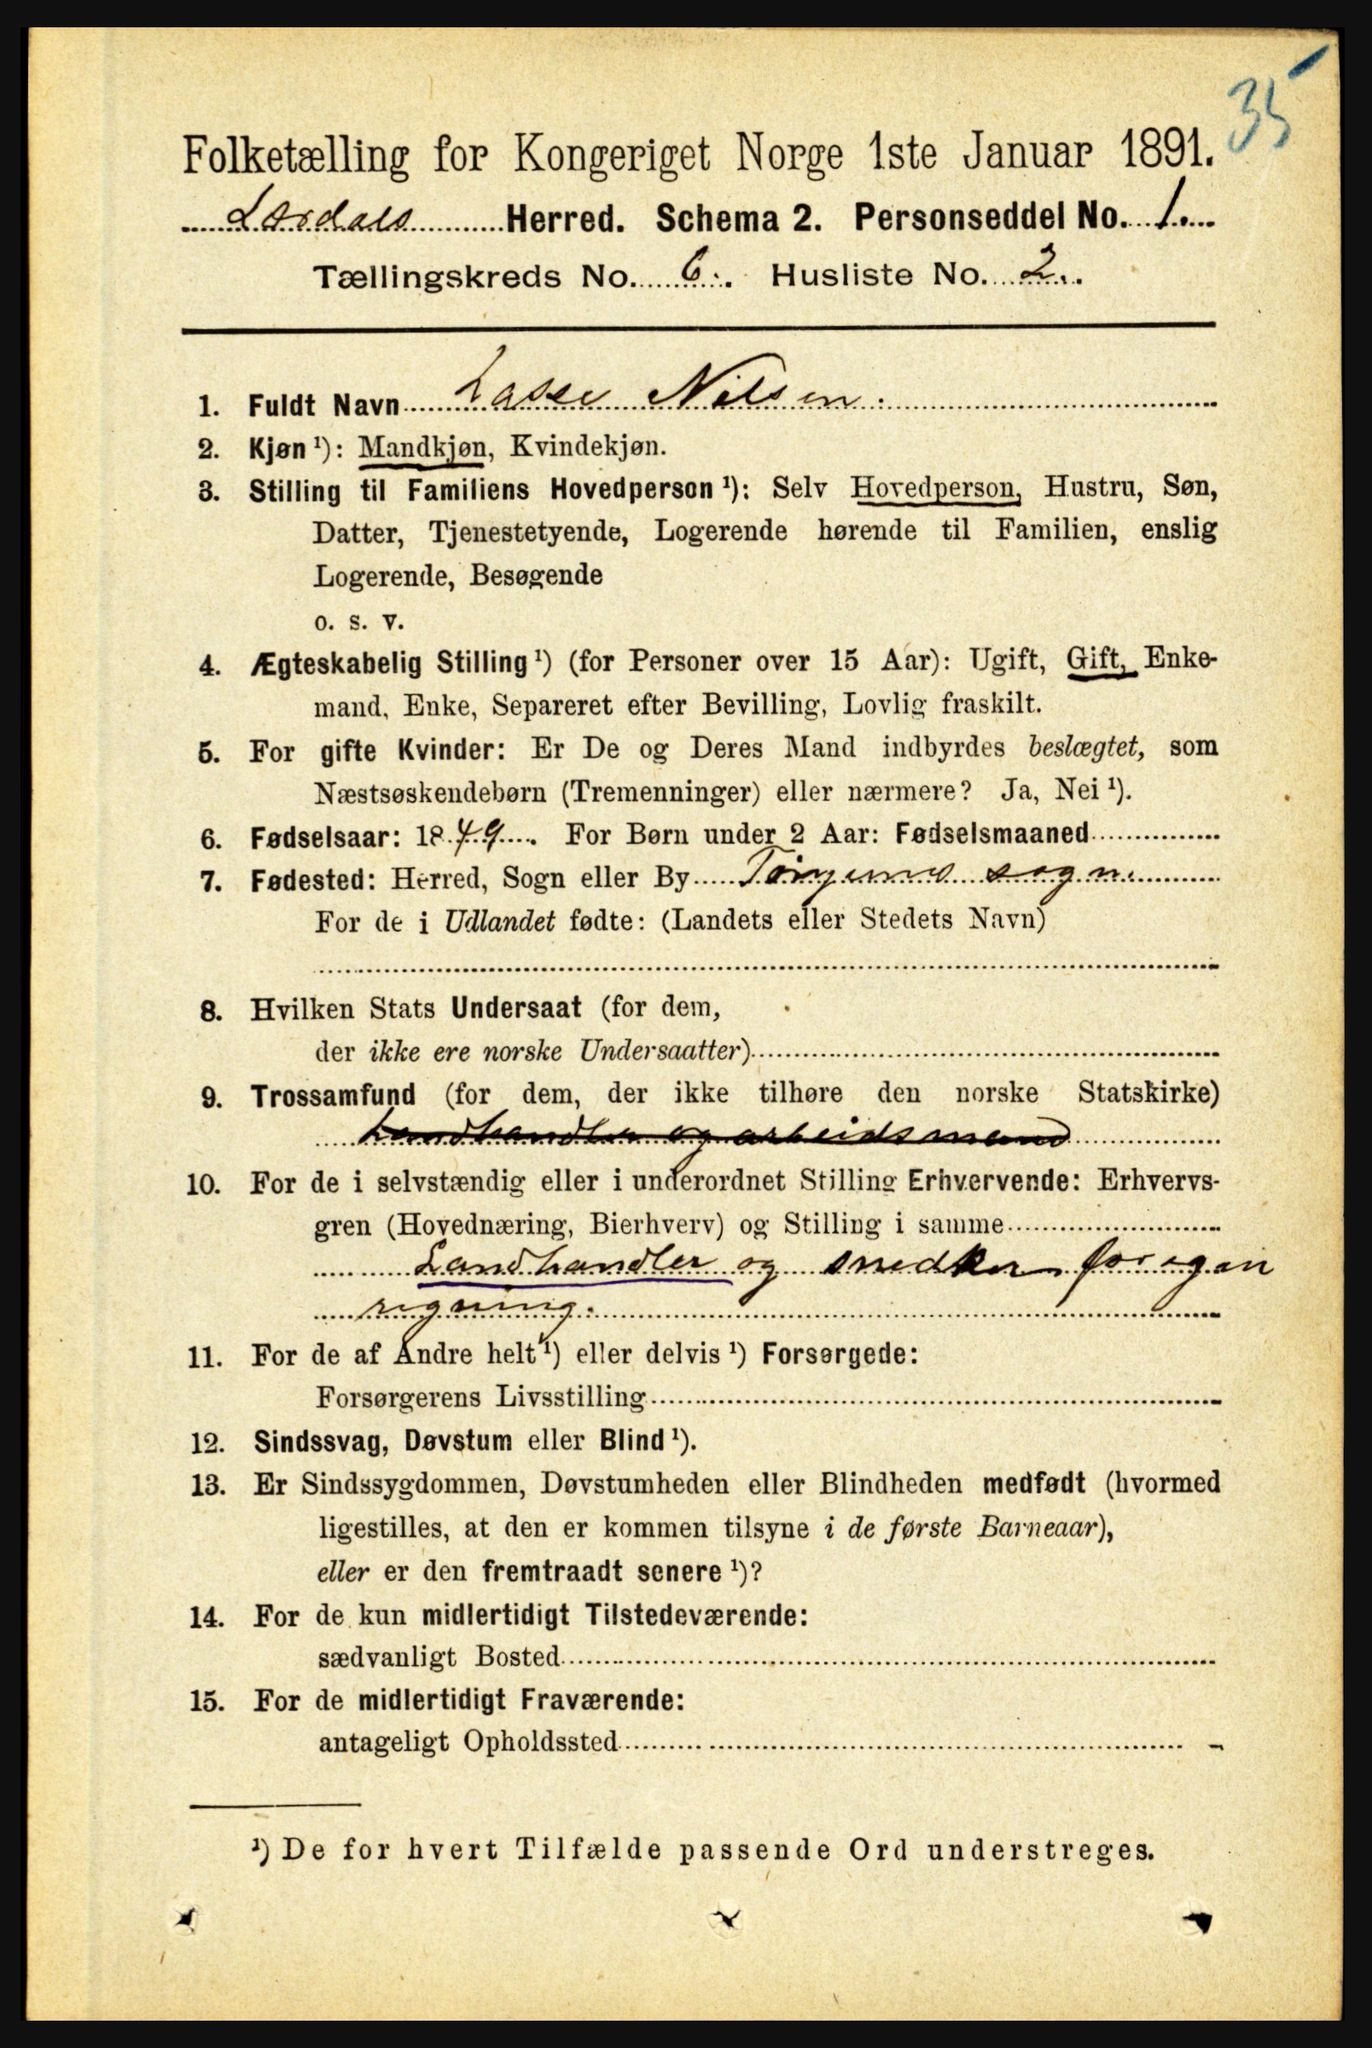 35
Folketælling for Kongeriget Norge 1ste Januar 1891.
Lærdals Herred. Schema 2. Personseddel No. 1.
Tællingskreds No. 6. Husliste No. 2.
1. Fuldt Navn Lasse Nilsen.
2. Kjøn ¹): Mandkjøn, Kvindekjøn.
3. Stilling til Familiens Hovedperson ¹): Selv Hovedperson, Hustru, Søn,
Datter, Tjenestetyende, Logerende hørende til Familien, enslig
Logerende, Besøgende
o. s. v.
4. Ægteskabelig Stilling ¹) (for Personer over 15 Aar): Ugift, Gift, Enke-
mand, Enke, Separeret efter Bevilling, Lovlig fraskilt.
5. For gifte Kvinder: Er De og Deres Mand indbyrdes beslægtet, som
Næstsøskendebørn (Tremenninger) eller nærmere? Ja, Nei ¹).
6. Fødselsaar: 1849. For Børn under 2 Aar: Fødselsmaaned
7. Fødested: Herred, Sogn eller By Tønjums sogn.
For de i Udlandet fødte: (Landets eller Stedets Navn)
8. Hvilken Stats Undersaat (for dem,
der ikke ere norske Undersaatter)
9. Trossamfund (for dem, der ikke tilhøre den norske Statskirke)
Landhandler og arbeidsmand
10. For de i selvstændig eller i underordnet Stilling Erhvervende: Erhvervs-
gren (Hovednæring, Bierhverv) og Stilling i samme
Landhandler og snedker for egen
regning.
11. For de af Andre helt ¹) eller delvis ¹) Forsørgede:
Forsørgerens Livsstilling
12. Sindssvag, Døvstum eller Blind ¹).
13. Er Sindssygdommen, Døvstumheden eller Blindheden medfødt (hvormed
ligestilles, at den er kommen tilsyne i de første Barneaar),
eller er den fremtraadt senere ¹)?
14. For de kun midlertidigt Tilstedeværende:
sædvanligt Bosted
15. For de midlertidigt Fraværende:
antageligt Opholdssted
¹) De for hvert Tilfælde passende Ord understreges.